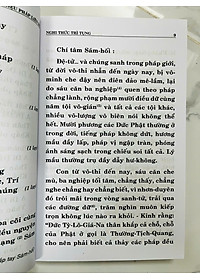 NGHI THỨC TRÌ TỤNG
9
Chí tâm Sám-hối :
Đệ-tử.. và chúng sanh trong pháp giới,
từ đời vô-thỉ nhẫn đến ngày nay, bị vô-
minh che đậy nên điên đảo mê-lầm, lại
do sáu căn ba nghiệp quen theo pháp
chẳng lành, rộng phạm mười điều dữ cùng
tội vô-gián và tất cả các tội khác,
nhiều vô lượng vô biên nói không thể
hết. Mười phương các Đức Phật thường ở
trong đời, tiếng pháp không dứt, hương
mầu đầy lấp, pháp vị ngập tràn, phóng
ánh sáng sạch trong chiếu soi tất cả. Lý
mầu thường trụ đầy dẫy hư-không.
Con từ vô-thỉ đến nay, sáu căn che
mù, ba nghiệp tối tăm, chẳng thấy, chẳng
nghe chẳng hay chẳng biết, vì nhơn-duyên
đó trôi mãi trong vòng sanh-tử, trải qua
các đường dữ, trăm nghìn muôn kiếp
trọn không lúc nào ra khỏi. - Kinh rằng:
"Đức Tỳ-Lô-Giá-Na thân khắp cả chỗ, chỗ
của Phật ở gọi là Thường-Tịch-Quang,
cho nên phải biết cả thảy các pháp đều